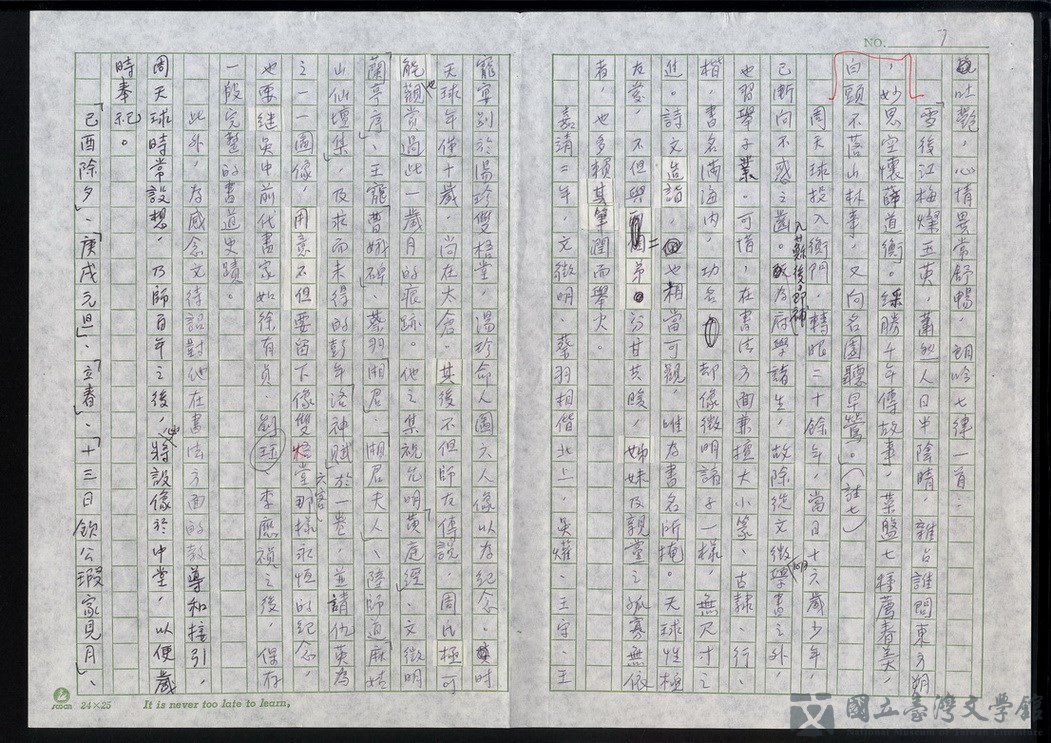 NO. 7
吐艷，心情異常舒暢，朗吟七律一首：
「雪後江梅燦玉英，蕭然人日半陰晴，雜占誰問東方朔
，妙思空懷薛道衡。綵勝千年傳故事，菜盤七種薦春羹，
白頭不落山林事，又向名園聽早鶯。」（註七）
周天球投入衡門，轉眼二十餘年，當日十六歲少年，
已漸向不惑之齒。為府學諸生，故除從文徵明學書之外，
也習舉子業。可惜，在書法方面兼擅大小篆、古隸、行、
楷，書名滿海內，功名却像徵明諸子一樣，無尺寸之
進。詩文造詣，也相當可觀，唯為書名所掩。天球性極
友愛，不但與二弟分甘共暖，姊妹及親黨之孤寡無依
者，也多賴其筆潤而舉火。
嘉靖二年，文徵明、蔡羽相偕北上，吳爟、王守、王
寵宴別於湯珍雙梧堂，湯珍命人圖六人像以為紀念，時
天球年僅十歲，尚在太倉。其後不但師友傳說，周氏極可
能也觀賞過此一歲月的痕跡。他之集祝允明「黃庭經」、文徵明
「蘭亭序」、王寵「曹娥碑」、蔡羽「湘君」、「湘君夫人」、陸師道「麻姑
山仙壇集」，及求而未得的彭年「洛神賦」於一卷，並請仇英為
之一一圖像，用意不但要留下像雙梧堂六客圖那樣永恒的紀念，
也要繼吳中前代書家如徐有貞、劉珏、李應禎之後，保存
一段完整的書道史蹟。
此外，為感念文待詔對他在書法方面的教導和接引，
周天球時常設想，乃師百年之後，必將設像於中堂，以便歲
時奉祀。
「己酉除夕」、「庚戌元旦」、「立春」、「十三日欽公瑕家見月」、
SOGAN 24×25 It is never too late to learn,
國立臺灣文學館
National Museum of Taiwan Literature